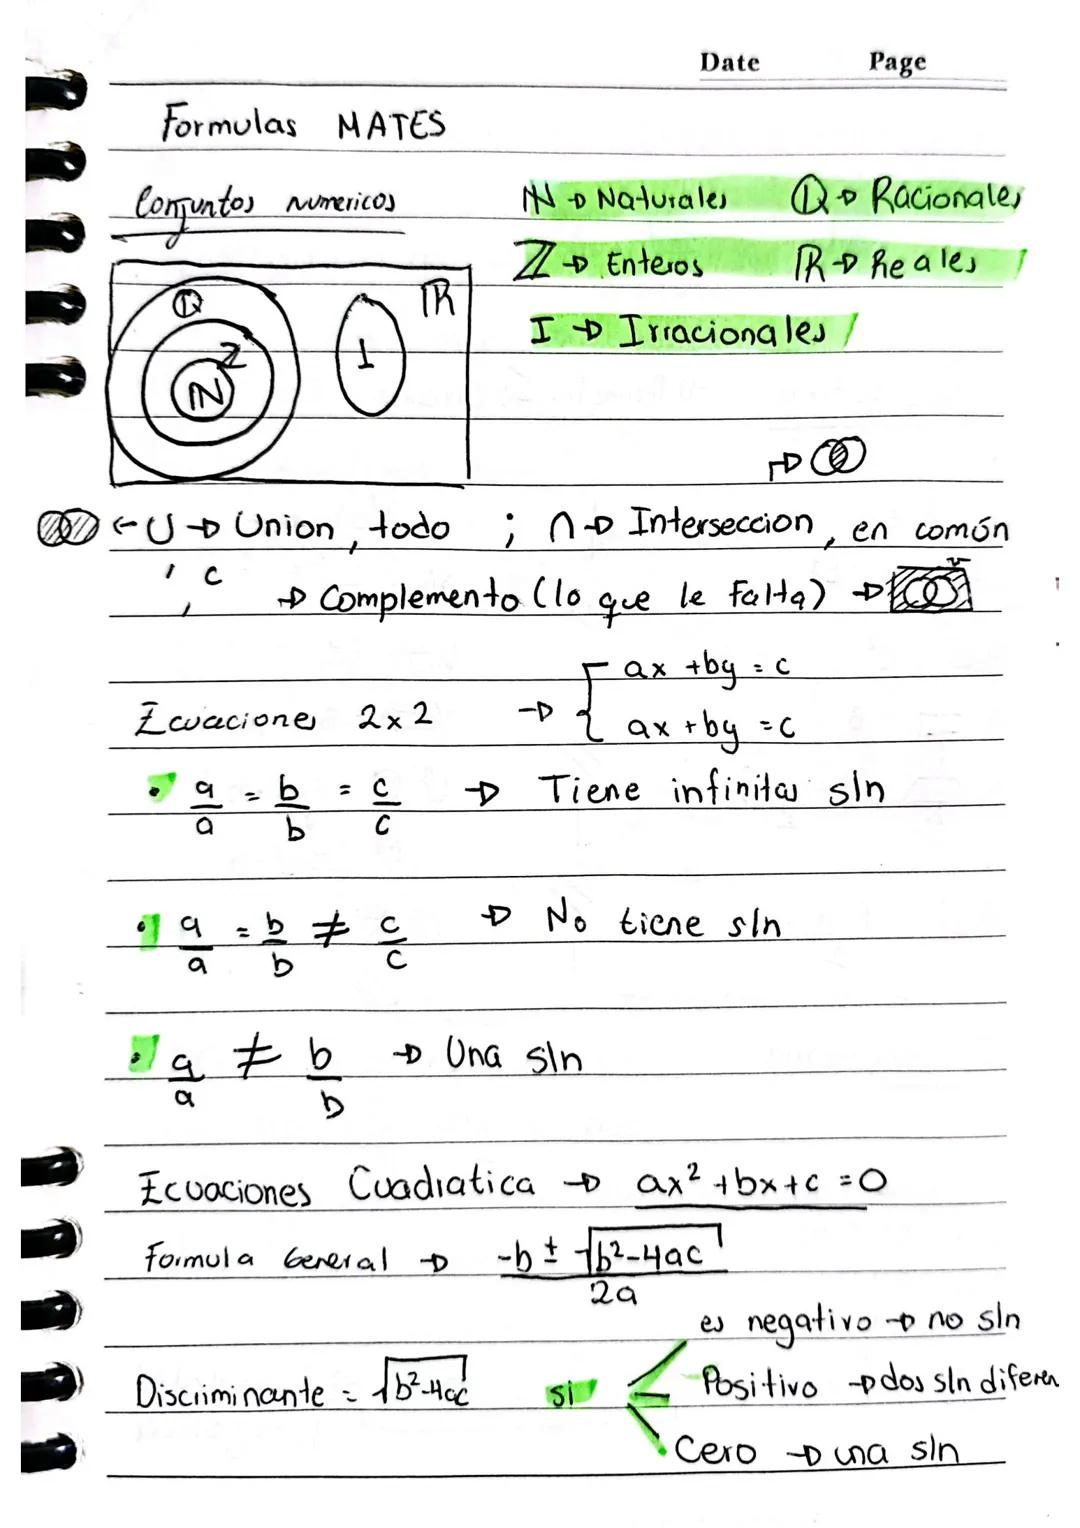 Date Page
Formulas MATES
Conjuntos numericos
ℕ → Naturales ℚ → Racionales
ℤ → Enteros ℝ → Reales
I → Irracionales
ℚ ℤ ℕ I ℝ
← U → Union, todo ; ∩ → Interseccion, en común
', c → Complemento (lo que le falta) →
Ecuaciones 2x2 → { ax + by = c
ax + by = c
• a/a = b/b = c/c → Tiene infinitas sln
• a/a = b/b ≠ c/c → No tiene sln
• a/a ≠ b/b → Una sln
Ecuaciones Cuadratica → ax² + bx + c = 0
Formula General → -b ± √b²-4ac / 2a
es negativo → no sln
Discriminante = √b²-4ac si Positivo → dos sln diferen
Cero → una sln